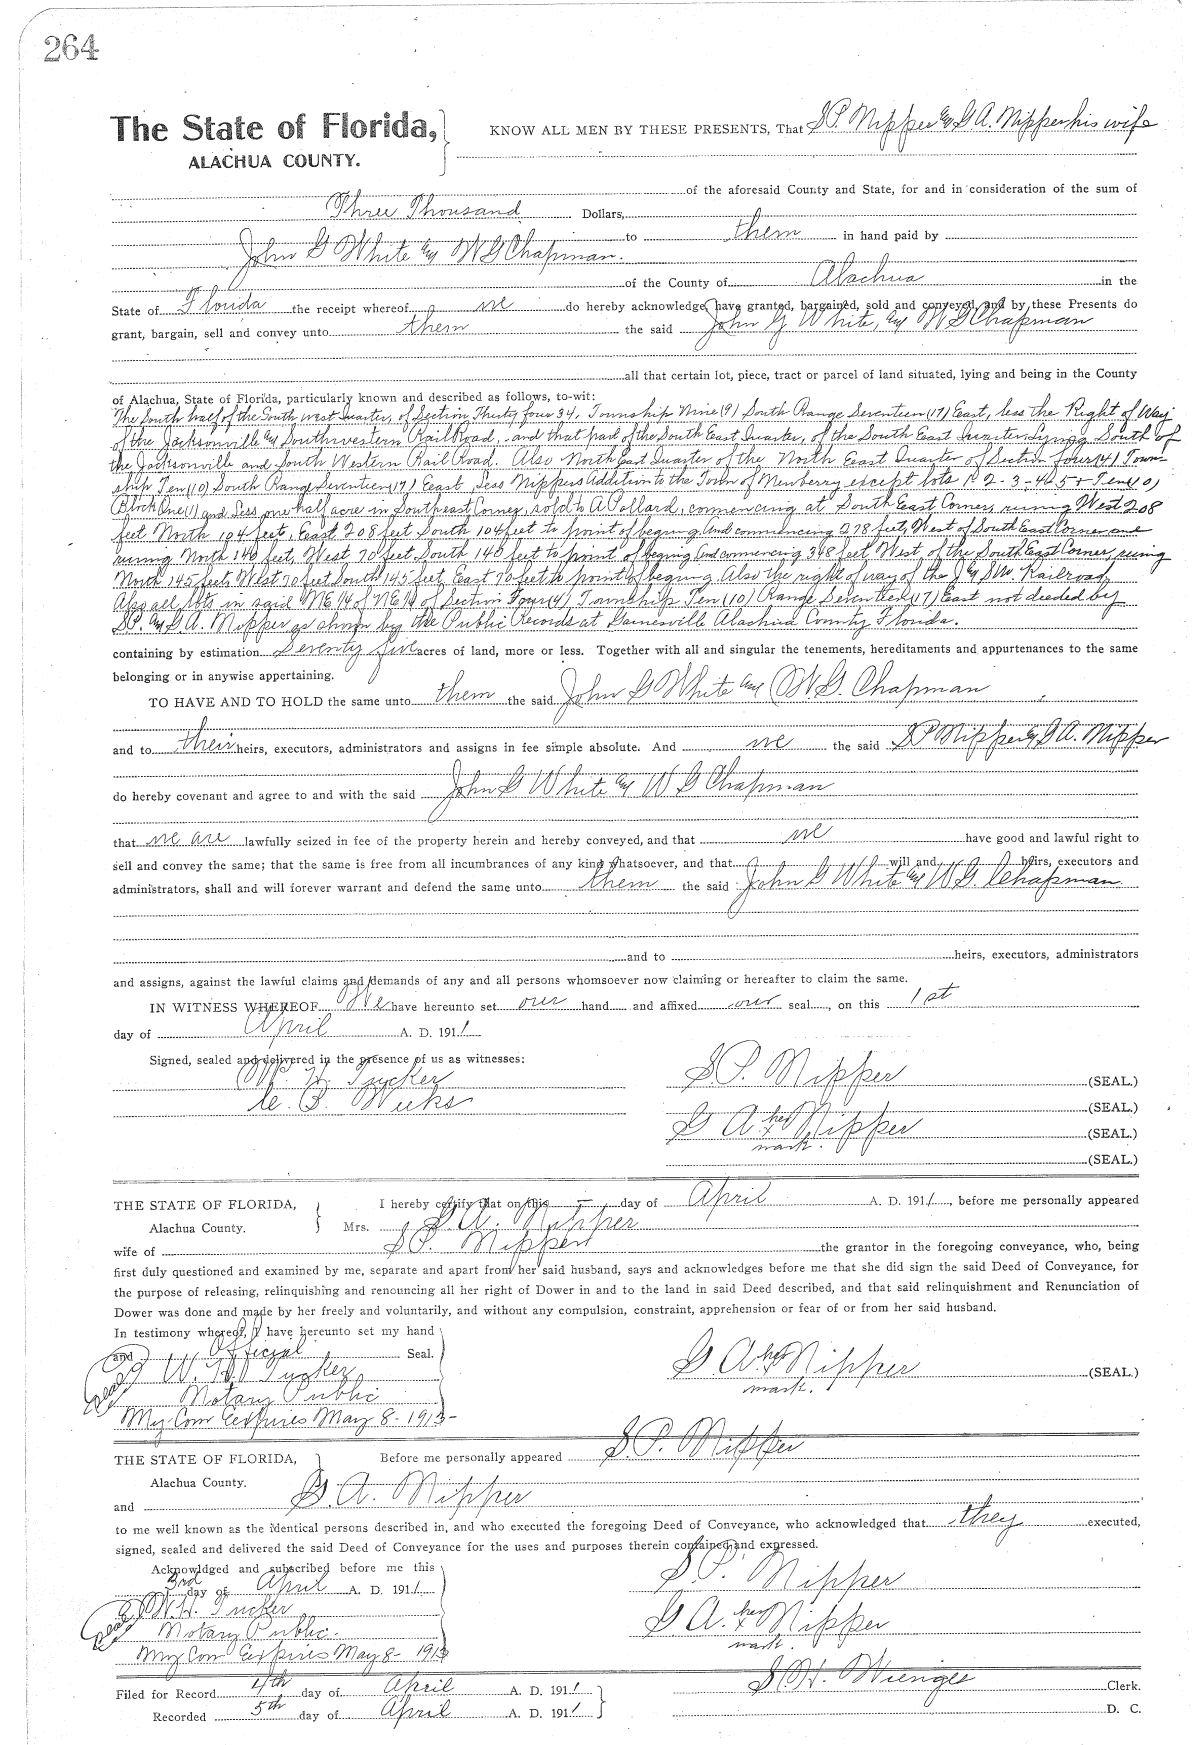 264
The State of Florida,
ALACHUA COUNTY.
KNOW ALL MEN BY THESE PRESENTS, That S.P. Nipper & G A. Nipper his wife
of the aforesaid County and State, for and in consideration of the sum of
Three Thousand Dollars,
to them in hand paid by
John G White & W G Chapman.
of the County of Alachua in the
State of Florida the receipt whereof we do hereby acknowledge, have granted, bargained, sold and conveyed, and by these Presents do
grant, bargain, sell and convey unto them the said John G White, & W G Chapman
all that certain lot, piece, tract or parcel of land situated, lying and being in the County
of Alachua, State of Florida, particularly known and described as follows, to-wit:
The South half of the South west Quarter, of Section Thirty four 34, Township Nine (9) South Range Seventeen (17) East, less the Right of Way
of the Jacksonville & Southwestern RailRoad, and that part of the South East Quarter, of the South East Quarter, Lying South of
the Jacksonville and South Western Rail Road. Also North East Quarter of the North East Quarter of Section four (4) Town-
ship Ten (10) South Range Seventeen (17) East, Less Nippers Addition to the Town of Newberry except lots 1- 2 - 3 - 4 - 5 & Ten (10)
Block One (1) and Less one half acre in Southeast Corner, sold to A Pollard, commencing at South East Corner, runing West 208
feet North 104 feet, East 208 feet South 104 feet to point of begining and commencing 278 feet, West of South East Corner and
runing North 140 feet, West 70 feet, South 140 feet to point of begining and commencing 348 feet West of the South East Corner, runing
North 145 feet, West 70 feet South 145 feet, East 70 feet to point of begining. Also the right of way of the J & SW Railroad,
Also all lots in said NE 1/4 of NE 1/4 of Section Four (4) Township Ten (10) Range Seventeen (17) East not deeded by
S.P. & G A. Nipper as shown by the Public Records at Gainesville Alachua County Florida.
containing by estimation Seventy five acres of land, more or less. Together with all and singular the tenements, hereditaments and appurtenances to the same
belonging or in anywise appertaining.
TO HAVE AND TO HOLD the same unto them the said John G White & W.G. Chapman
and to their heirs, executors, administrators and assigns in fee simple absolute. And we the said S P Nipper & G A. Nipper
do hereby covenant and agree to and with the said John G White & W G Chapman
that we are lawfully seized in fee of the property herein and hereby conveyed, and that we have good and lawful right to
sell and convey the same; that the same is free from all incumbrances of any kind whatsoever, and that will and heirs, executors and
administrators, shall and will forever warrant and defend the same unto them the said John G White & W G. Chapman
and to heirs, executors, administrators
and assigns, against the lawful claims and demands of any and all persons whomsoever now claiming or hereafter to claim the same.
IN WITNESS WHEREOF We have hereunto set our hand and affixed our seal, on this 1st
day of April A. D. 1911
Signed, sealed and delivered in the presence of us as witnesses:
W. H. Tucker
C. B. Weeks
S.P. Nipper (SEAL.)
(SEAL.)
G A. her x mark. Nipper (SEAL.)
(SEAL.)
THE STATE OF FLORIDA,
Alachua County.
I hereby certify that on this day of April A. D. 1911, before me personally appeared
Mrs. G. A. Nipper
wife of S P. Nipper the grantor in the foregoing conveyance, who, being
first duly questioned and examined by me, separate and apart from her said husband, says and acknowledges before me that she did sign the said Deed of Conveyance, for
the purpose of releasing, relinquishing and renouncing all her right of Dower in and to the land in said Deed described, and that said relinquishment and Renunciation of
Dower was done and made by her freely and voluntarily, and without any compulsion, constraint, apprehension or fear of or from her said husband.
In testimony whereof, I have hereunto set my hand
and Official Seal.
Seal W. H. Tucker
Notary Public
My Com Expires May 8 - 1913 -
G A her x mark. Nipper (SEAL.)
THE STATE OF FLORIDA,
Alachua County.
Before me personally appeared S.P. Nipper
and G. A. Nipper
to me well known as the identical persons described in, and who executed the foregoing Deed of Conveyance, who acknowledged that they executed,
signed, sealed and delivered the said Deed of Conveyance for the uses and purposes therein contained and expressed.
Acknowldged and subscribed before me this
3rd day of April A. D. 1911
Seal W. H. Tucker
Notary Public.
My Com Expires May 8 - 1913
S P. Nipper
G A. her x mark. Nipper
Filed for Record 4th day of April A. D. 1911
Recorded 5th day of April A. D. 1911
S H. Wienges Clerk.
D. C.